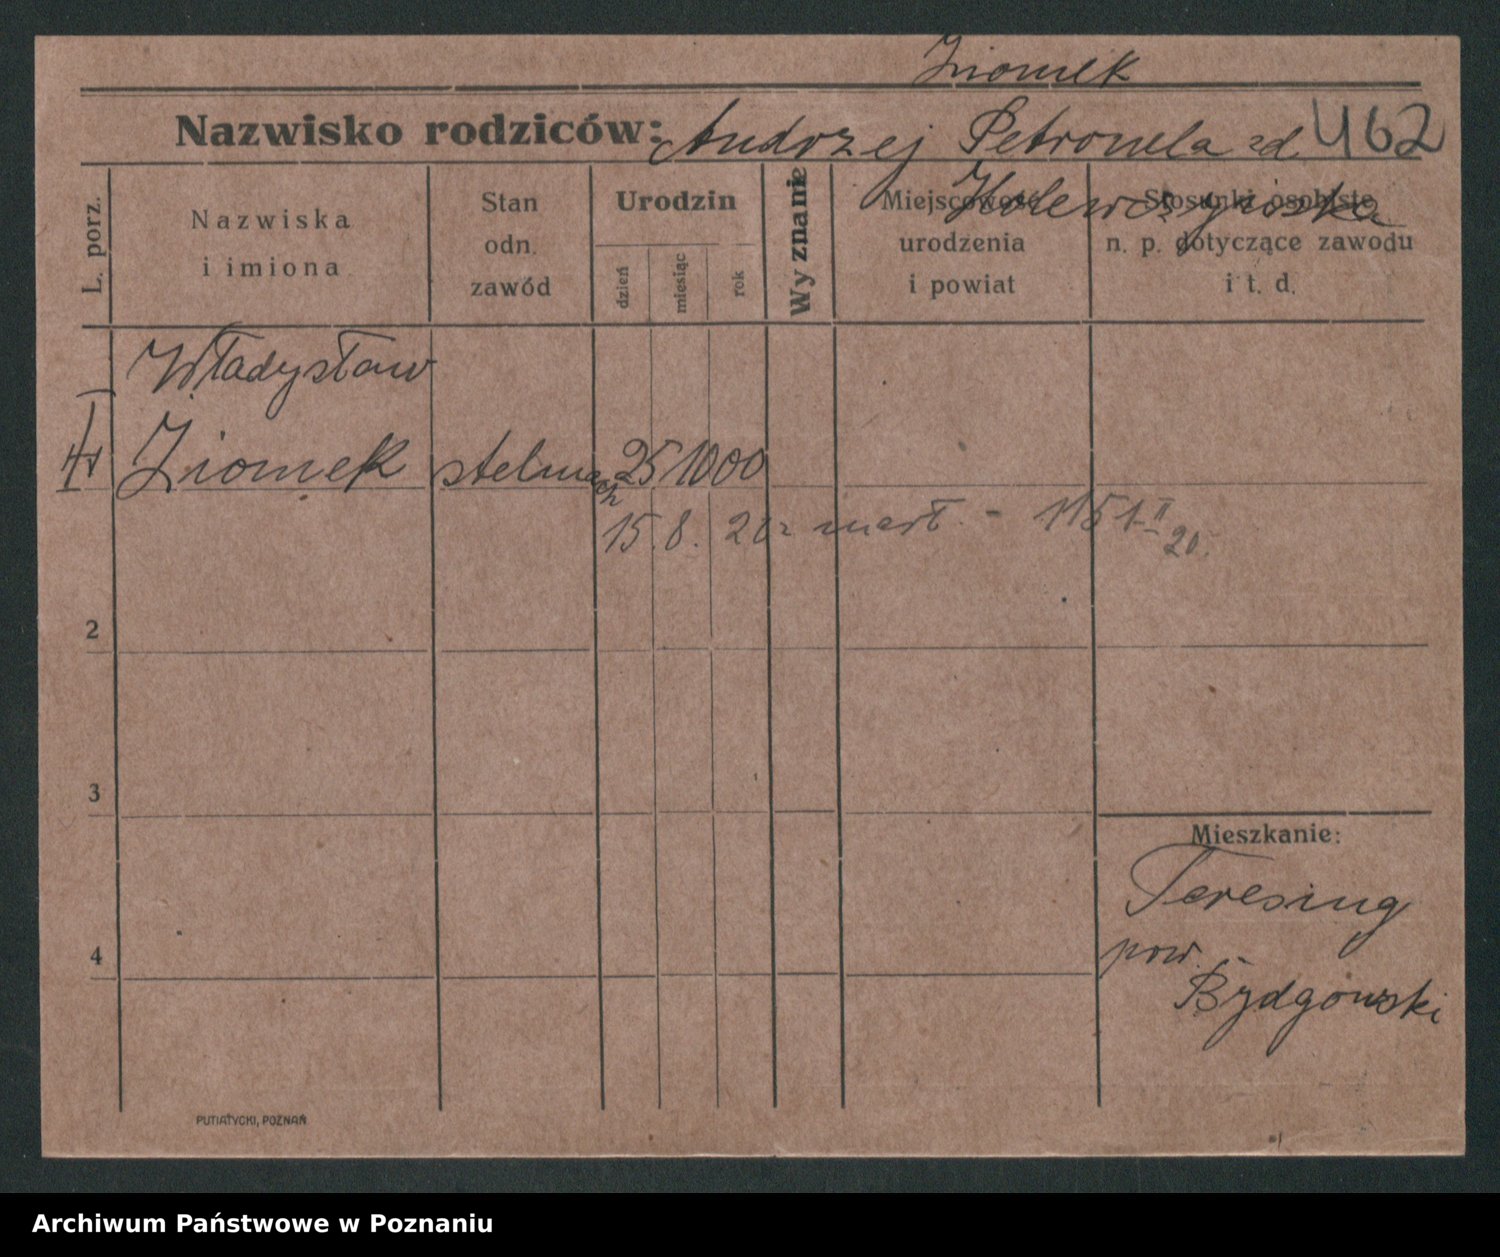 Ziomek
Nazwisko rodziców: Andrzej Petronela zd. 462
Holewczyńska
L. porz.
Nazwiska
i imiona
Stan
odn.
zawód
Urodzin
dzień
miesiąc
rok
Wyznanie
Miejscowość
urodzenia
i powiat
Stosunki osobiste
n. p. dotyczące zawodu
i t. d.
Władysław
Ziomek stelmach 25 10 00
15. 8. 20 r. marł. - 1151 II
20.
2
3
Mieszkanie:
Teresing
4
pow.
Bydgowski
PUTIATYCKI, POZNAŃ
Archiwum Państwowe w Poznaniu